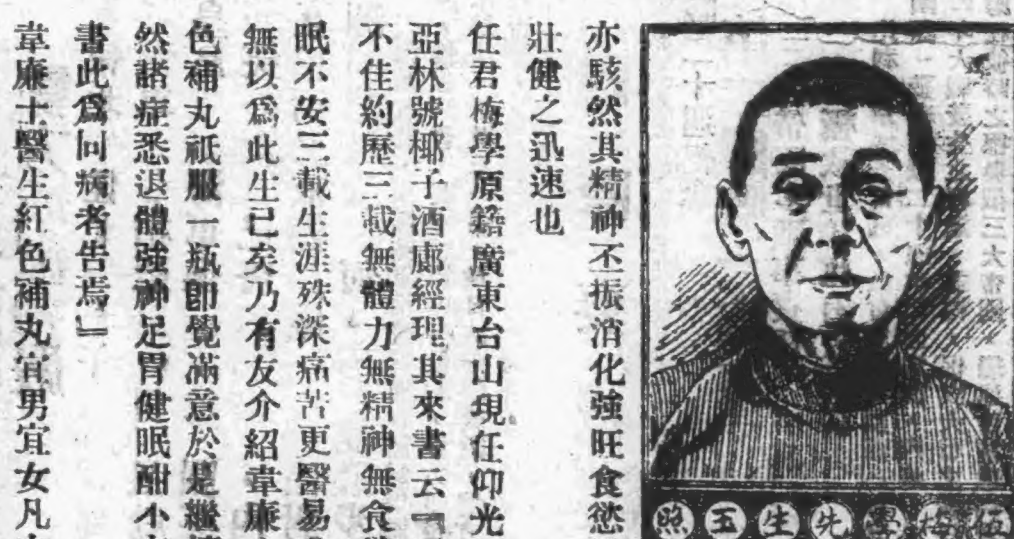 亦駭然其精神丕振消化強旺食慾
壯健之迅速也
任君梅學原籍廣東台山現任仰光
亞林號椰子酒廊經理其來書云『
不佳約歷三載無體力無精神無食
眠不安三載生涯殊深痛苦更醫易
無以爲此生已矣乃有友介紹韋廉
色補丸祇服一瓶卽覺滿意於是繼
然諸症悉退體強神足胃健眠酣
書此爲同病者告焉』
韋廉士醫生紅色補丸宜男宜女凡
伍梅學先生玉照